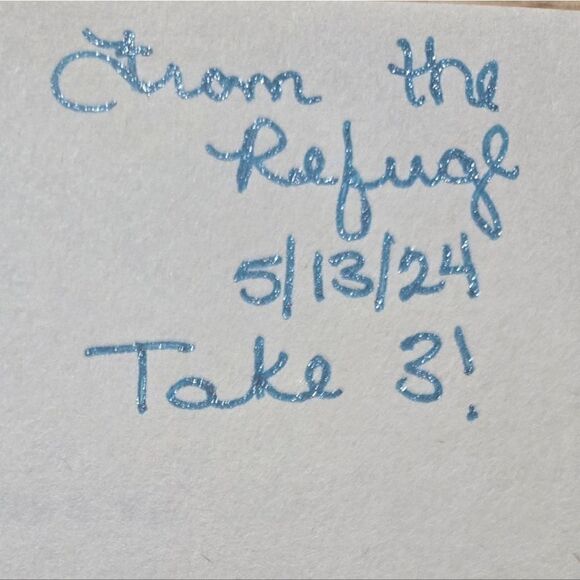 From the
Refuge
5/13/24
Take 3!